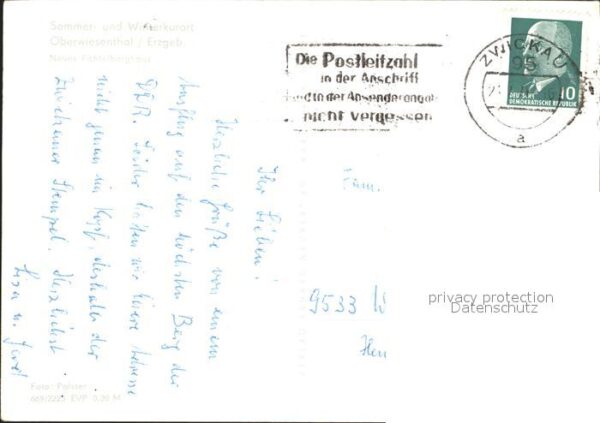 Sommer- und Winterkurort
Oberwiesenthal / Erzgeb.
Neues Fichtelberghaus
Die Postleitzahl
in der Anschrift
und in der Absenderangabe
nicht vergessen
ZWICKAU
95
a
DEUTSCHE
DEMOKRATISCHE REPUBLIK
10
Ihr Lieben!
Herzliche Grüße von einem
Ausflug auf den höchsten Berg der
DDR. Leider hatten wir Eure Adresse
nicht genau im Kopf, deshalb der
Zwickauer Stempel. Herzlichst
Fam.
9533
privacy protection
Datenschutz
Foto: Polster
669/2223 EVP 0,20 M